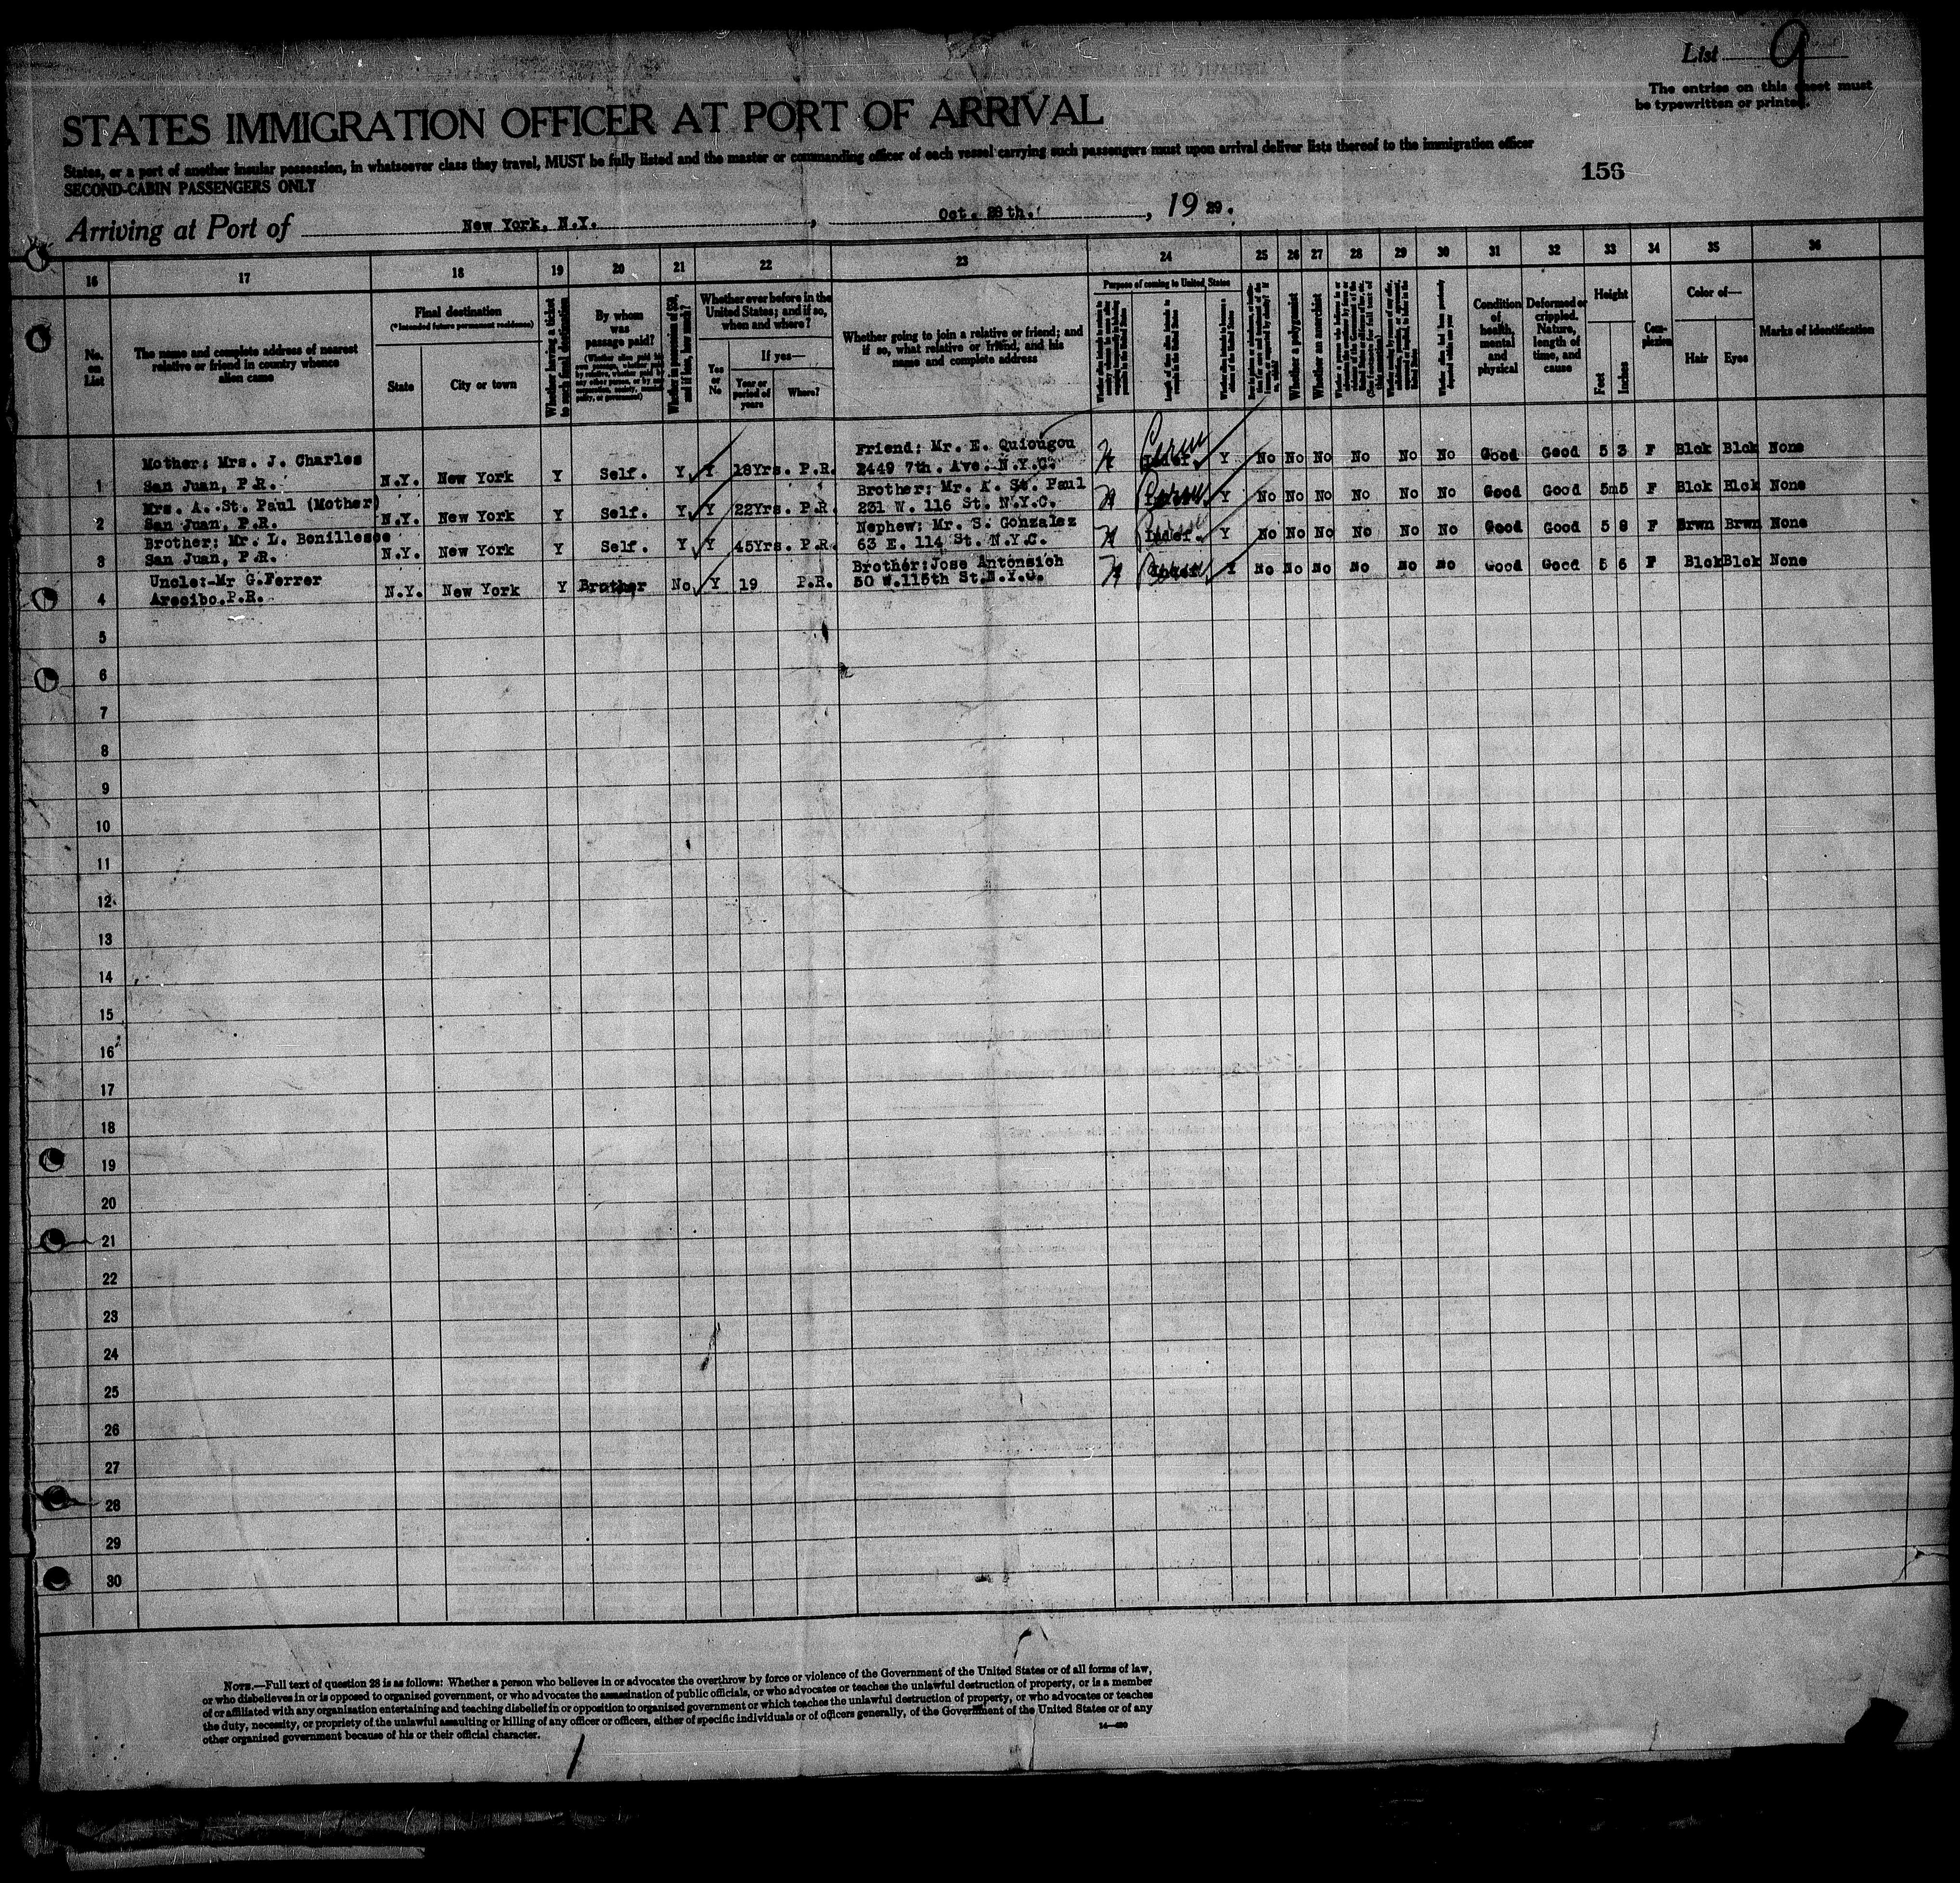 List 9
The entries on this sheet must
be typewritten or printed.
STATES IMMIGRATION OFFICER AT PORT OF ARRIVAL
States, or a port of another insular possession, in whatsoever class they travel, MUST be fully listed and the master or commanding officer of each vessel carrying such passengers must upon arrival deliver lists thereof to the immigration officer
SECOND-CABIN PASSENGERS ONLY
156
Arriving at Port of New York, N.Y. , Oct. 28th. , 19 29.
16 17 18 19 20 21 22 23 24 25 26 27 28 29 30 31 32 33 34 35 36
No. on List
The name and complete address of nearest relative or friend in country whence alien came
Final destination
(*Intended future permanent residence)
State
City or town
Whether having a ticket to such final destination
By whom was passage paid?
Whether in possession of $50, and if less, how much?
Whether ever before in the United States; and if so, when and where?
Yes or No
If yes—
Year or period of years
Where?
Whether going to join a relative or friend; and if so, what relative or friend, and his name and complete address
Purpose of coming to United States
Whether a polygamist
Whether an anarchist
Condition of health, mental and physical
Deformed or crippled. Nature, length of time, and cause
Height
Feet
Inches
Complexion
Color of—
Hair
Eyes
Marks of identification
Mother: Mrs. J. Charles Friend: Mr. E. Quiougou
1 San Juan, P.R. N.Y. New York Y Self. Y Y 18Yrs. P.R. 2449 7th. Ave. N.Y.C. N Y No No No No No No Good Good 5 3 F Blck Blck None
Mrs. A. St. Paul (Mother) Brother: Mr. A. St. Paul
2 San Juan, P.R. N.Y. New York Y Self. Y Y 22Yrs. P.R. 231 W. 116 St. N.Y.C. N Y No No No No No No Good Good 5m5 F Blck Blck None
Brother: Mr. L. Benillesce Nephew: Mr. S. Gonzalez
3 San Juan, P.R. N.Y. New York Y Self. Y Y 45Yrs. P.R. 63 E. 114 St. N.Y.C. N Y No No No No No No Good Good 5 8 F Brwn Brwn None
Uncle:-Mr G.Ferrer Brother:Jose Antonsich
4 Arecibo.P.R. N.Y. New York Y Brother No Y 19 P.R. 50 W.115th St.N.Y.C. N Y No No No No No No Good Good 5 6 F Blck Blck None
5
6
7
8
9
10
11
12
13
14
15
16
17
18
19
20
21
22
23
24
25
26
27
28
29
30
NOTE.—Full text of question 28 is as follows: Whether a person who believes in or advocates the overthrow by force or violence of the Government of the United States or of all forms of law,
or who disbelieves in or is opposed to organized government, or who advocates the assassination of public officials, or who advocates or teaches the unlawful destruction of property, or is a member
of or affiliated with any organization entertaining and teaching disbelief in or opposition to organized government or which teaches the unlawful destruction of property, or who advocates or teaches
the duty, necessity, or propriety of the unlawful assaulting or killing of any officer or officers, either of specific individuals or of officers generally, of the Government of the United States or of any
other organized government because of his or their official character.